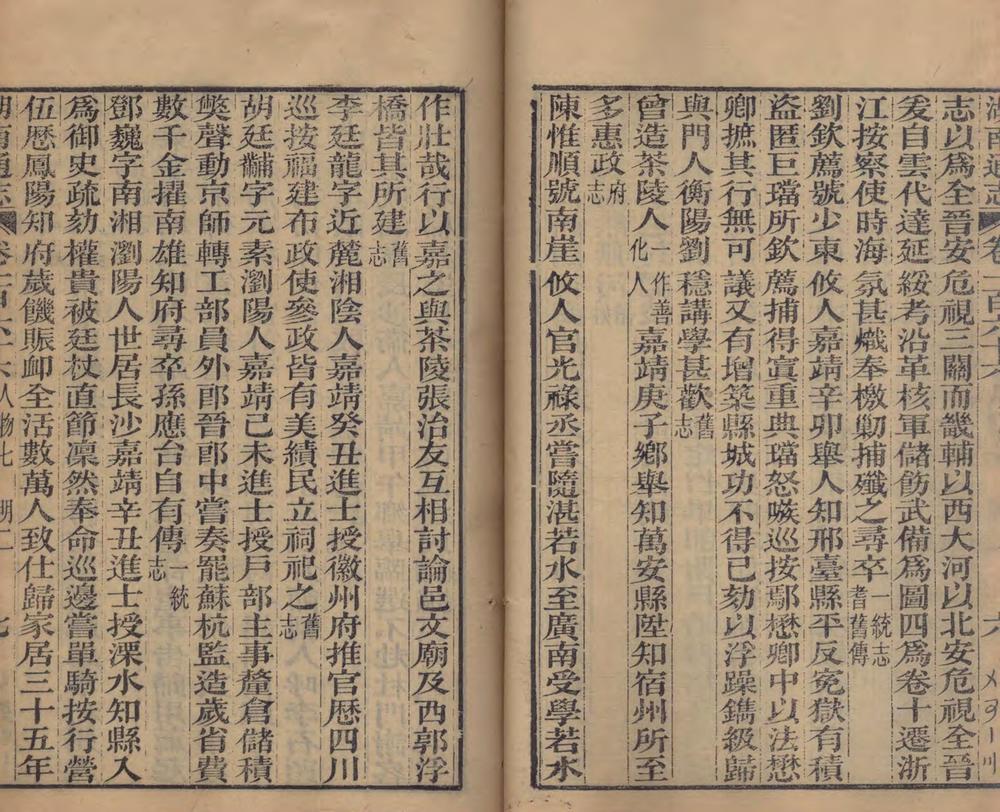 湖南通志 卷一百六十六
志以爲全晉安危視三關而畿輔以西大河以北安危視全晉
爰自雲代達延綏考沿革核軍儲飭武備爲圖四爲卷十遷浙
江按察使時海氛甚熾奉檄勦捕殲之尋卒一統志耆舊傳
劉欽薦號少東攸人嘉靖辛卯舉人知邢臺縣平反冤獄有積
盜匿巨璫所欽薦捕得寘重典璫怒嗾巡按鄢懋卿中以法懋
卿摭其行無可議又有增築縣城功不得已劾以浮躁鐫級歸
與門人衡陽劉穩講學甚歡舊志
曾造茶陵人一作善化人嘉靖庚子鄉舉知萬安縣陞知宿州所至
多惠政府志
陳惟順號南崖攸人官光祿丞嘗隨湛若水至廣南受學若水
作壯哉行以嘉之與茶陵張治友互相討論邑文廟及西郭浮
橋皆其所建舊志
李廷龍字近麓湘陰人嘉靖癸丑進士授徽州府推官歷四川
巡按福建布政使參政皆有美績民立祠祀之舊志
胡廷黼字元素瀏陽人嘉靖己未進士授戶部主事釐倉儲積
獘聲動京師轉工部員外郎晉郎中嘗奏罷蘇杭監造歲省費
數千金擢南雄知府尋卒孫應台自有傳一統志
鄧巍字南湘瀏陽人世居長沙嘉靖辛丑進士授溧水知縣入
爲御史疏劾權貴被廷杖直節凜然奉命巡邊嘗單騎按行營
伍歷鳳陽知府歲饑賑卹全活數萬人致仕歸家居三十五年
湖南通志 卷一百六十六 人物七 明二 七